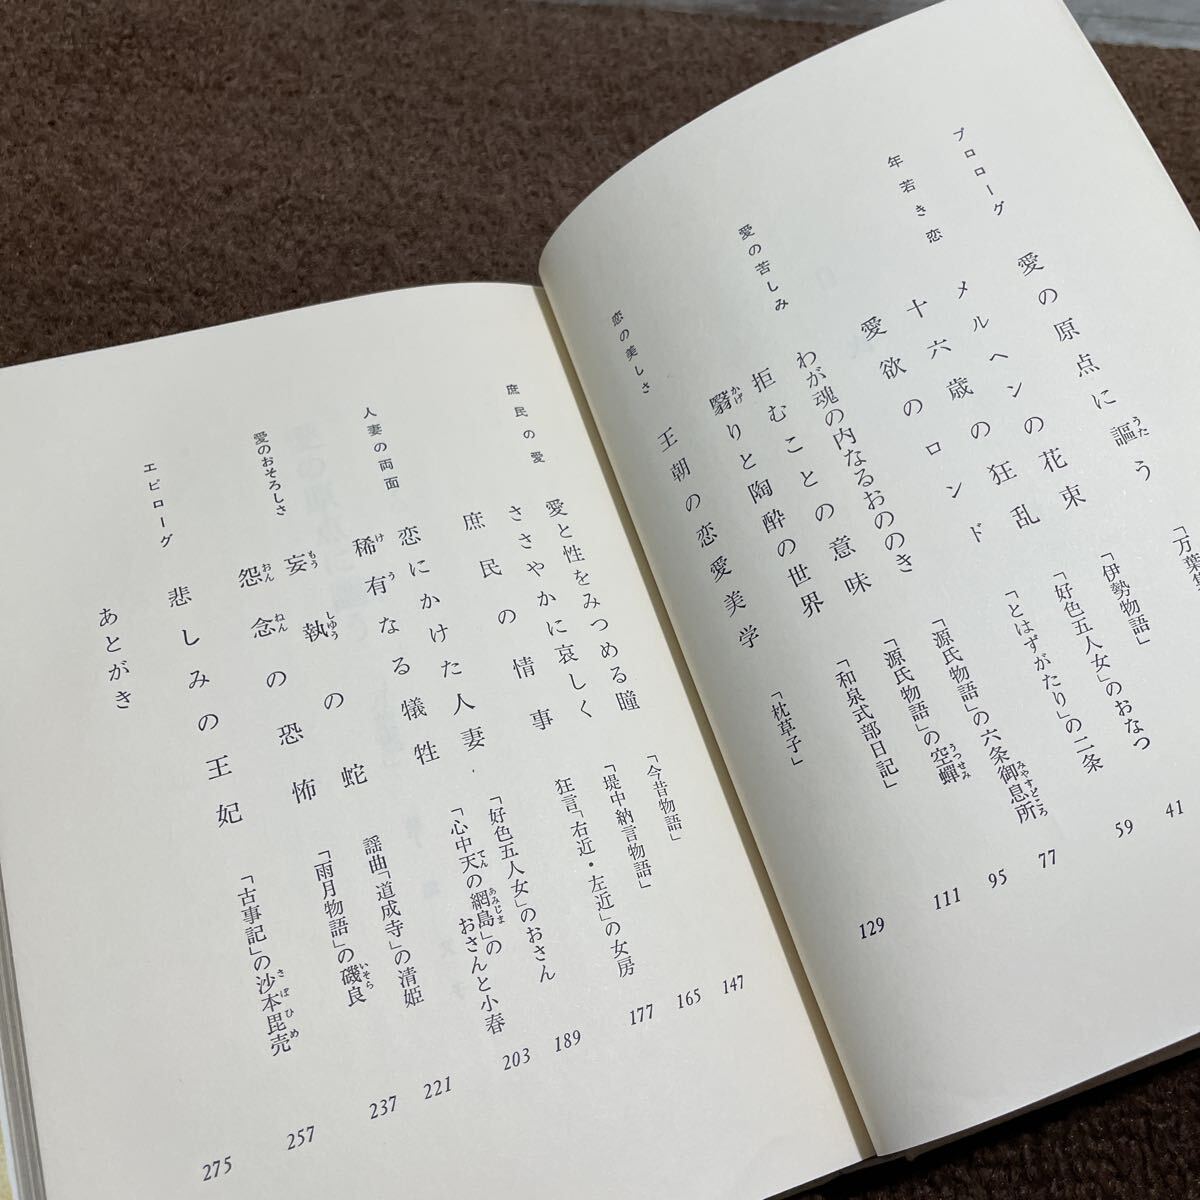 プロローグ 愛の原点に謳う 「万葉
年若き恋 メルヘンの花束 「伊勢物語」 41
十六歳の狂乱 「好色五人女」のおなつ 59
愛欲のロンド 「とはずがたり」の二条 77
愛の苦しみ わが魂の内なるおののき 「源氏物語」の六条御息所 95
拒むことの意味 「源氏物語」の空蟬 111
翳りと陶酔の世界 「和泉式部日記」 129
恋の美しさ 王朝の恋愛美学 「枕草子」 147
庶民の愛 愛と性をみつめる瞳 「今昔物語」 165
ささやかに哀しく 「堤中納言物語」 177
庶民の情事 狂言「右近・左近」の女房 189
人妻の両面 恋にかけた人妻 「好色五人女」のおさん 203
稀有なる犠牲 「心中天の網島」のおさんと小春 221
愛のおそろしさ 妄執の蛇 謡曲「道成寺」の清姫 237
怨念の恐怖 「雨月物語」の磯良 257
エピローグ 悲しみの王妃 「古事記」の沙本毘売 275
あとがき